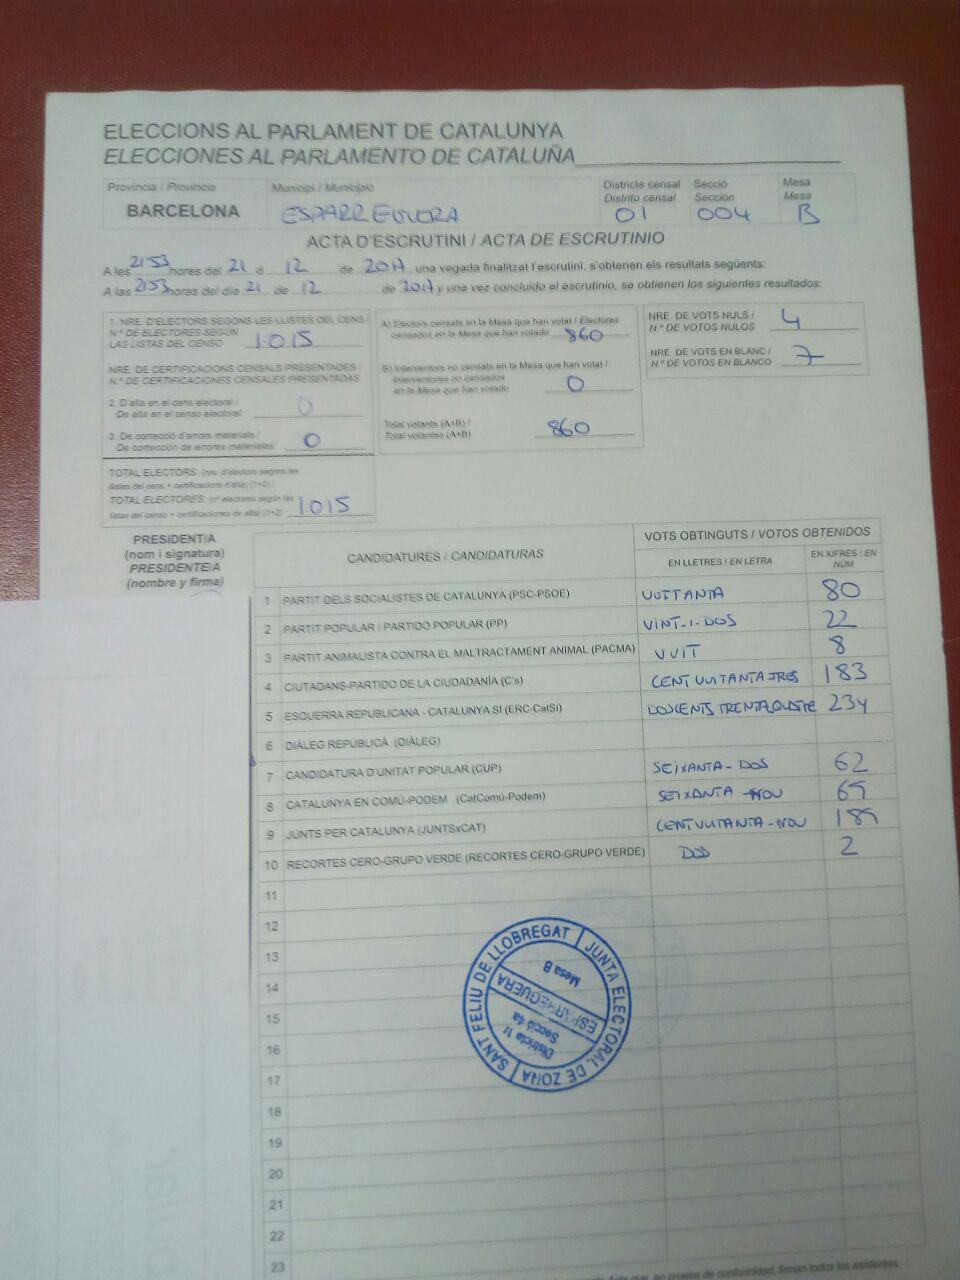 ELECCIONS AL PARLAMENT DE CATALUNYA
ELECCIONES AL PARLAMENTO DE CATALUÑA
Provincia / Provincia
BARCELONA
Municipi / Municipio
ESPARREGUERA
Districte censal
Distrito censal
01
Secció
Sección
004
Mesa
Mesa
B
ACTA D'ESCRUTINI / ACTA DE ESCRUTINIO
A les 2153 hores del 21 d 12 de 2017, una vegada finalitzat l'escrutini, s'obtenen els resultats següents:
A las 2153 horas del día 21 de 12 de 2017 y una vez concluido el escrutinio, se obtienen los siguientes resultados:
1. NRE. D'ELECTORS SEGONS LES LLISTES DEL CENS /
N.º DE ELECTORES SEGÚN
LAS LISTAS DEL CENSO 1.015
NRE. DE CERTIFICACIONS CENSALS PRESENTADES /
N.º DE CERTIFICACIONES CENSALES PRESENTADAS
2. D'alta en el cens electoral /
De alta en el censo electoral: 0
3. De correcció d'errors materials /
De corrección de errores materiales: 0
TOTAL ELECTORS: (nre. d'electors segons les
llistes del cens + certificacions d'alta) (1+2) /
TOTAL ELECTORES: (nº electores según las
listas del censo + certificaciones de alta) (1+2) 1.015
A) Electors censats en la Mesa que han votat / Electores
censados en la Mesa que han votado 860
B) Interventors no censats en la Mesa que han votat /
Interventores no censados
en la Mesa que han votado 0
Total votants (A+B) /
Total votantes (A+B) 860
NRE. DE VOTS NULS /
N.º DE VOTOS NULOS 4
NRE. DE VOTS EN BLANC /
N.º DE VOTOS EN BLANCO 7
PRESIDENT/A
(nom i signatura)
PRESIDENTE/A
(nombre y firma)
CANDIDATURES / CANDIDATURAS
VOTS OBTINGUTS / VOTOS OBTENIDOS
EN LLETRES / EN LETRA
EN XIFRES / EN NÚM.
1 PARTIT DELS SOCIALISTES DE CATALUNYA (PSC-PSOE) VUITANTA 80
2 PARTIT POPULAR / PARTIDO POPULAR (PP) VINT-I-DOS 22
3 PARTIT ANIMALISTA CONTRA EL MALTRACTAMENT ANIMAL (PACMA) VUIT 8
4 CIUTADANS-PARTIDO DE LA CIUDADANÍA (C's) CENT VUITANTA-TRES 183
5 ESQUERRA REPUBLICANA - CATALUNYA SÍ (ERC-CatSí) 234
6 DIÀLEG REPUBLICÀ (DIÀLEG)
7 CANDIDATURA D'UNITAT POPULAR (CUP) SEIXANTA-DOS 62
8 CATALUNYA EN COMÚ-PODEM (CatComú-Podem) SEIXANTA-NOU 69
9 JUNTS PER CATALUNYA (JUNTSxCAT) CENT VUITANTA-NOU 189
10 RECORTES CERO-GRUPO VERDE (RECORTES CERO-GRUPO VERDE) DOS 2
11
12
13
14
15
16
17
18
19
20
21
22
23
JUNTA ELECTORAL DE ZONA
SANT FELIU DE LLOBREGAT
Districte 1r
Secció 4a
ESPARREGUERA
Mesa B
en prueba de conformidad, firman todos los asistentes